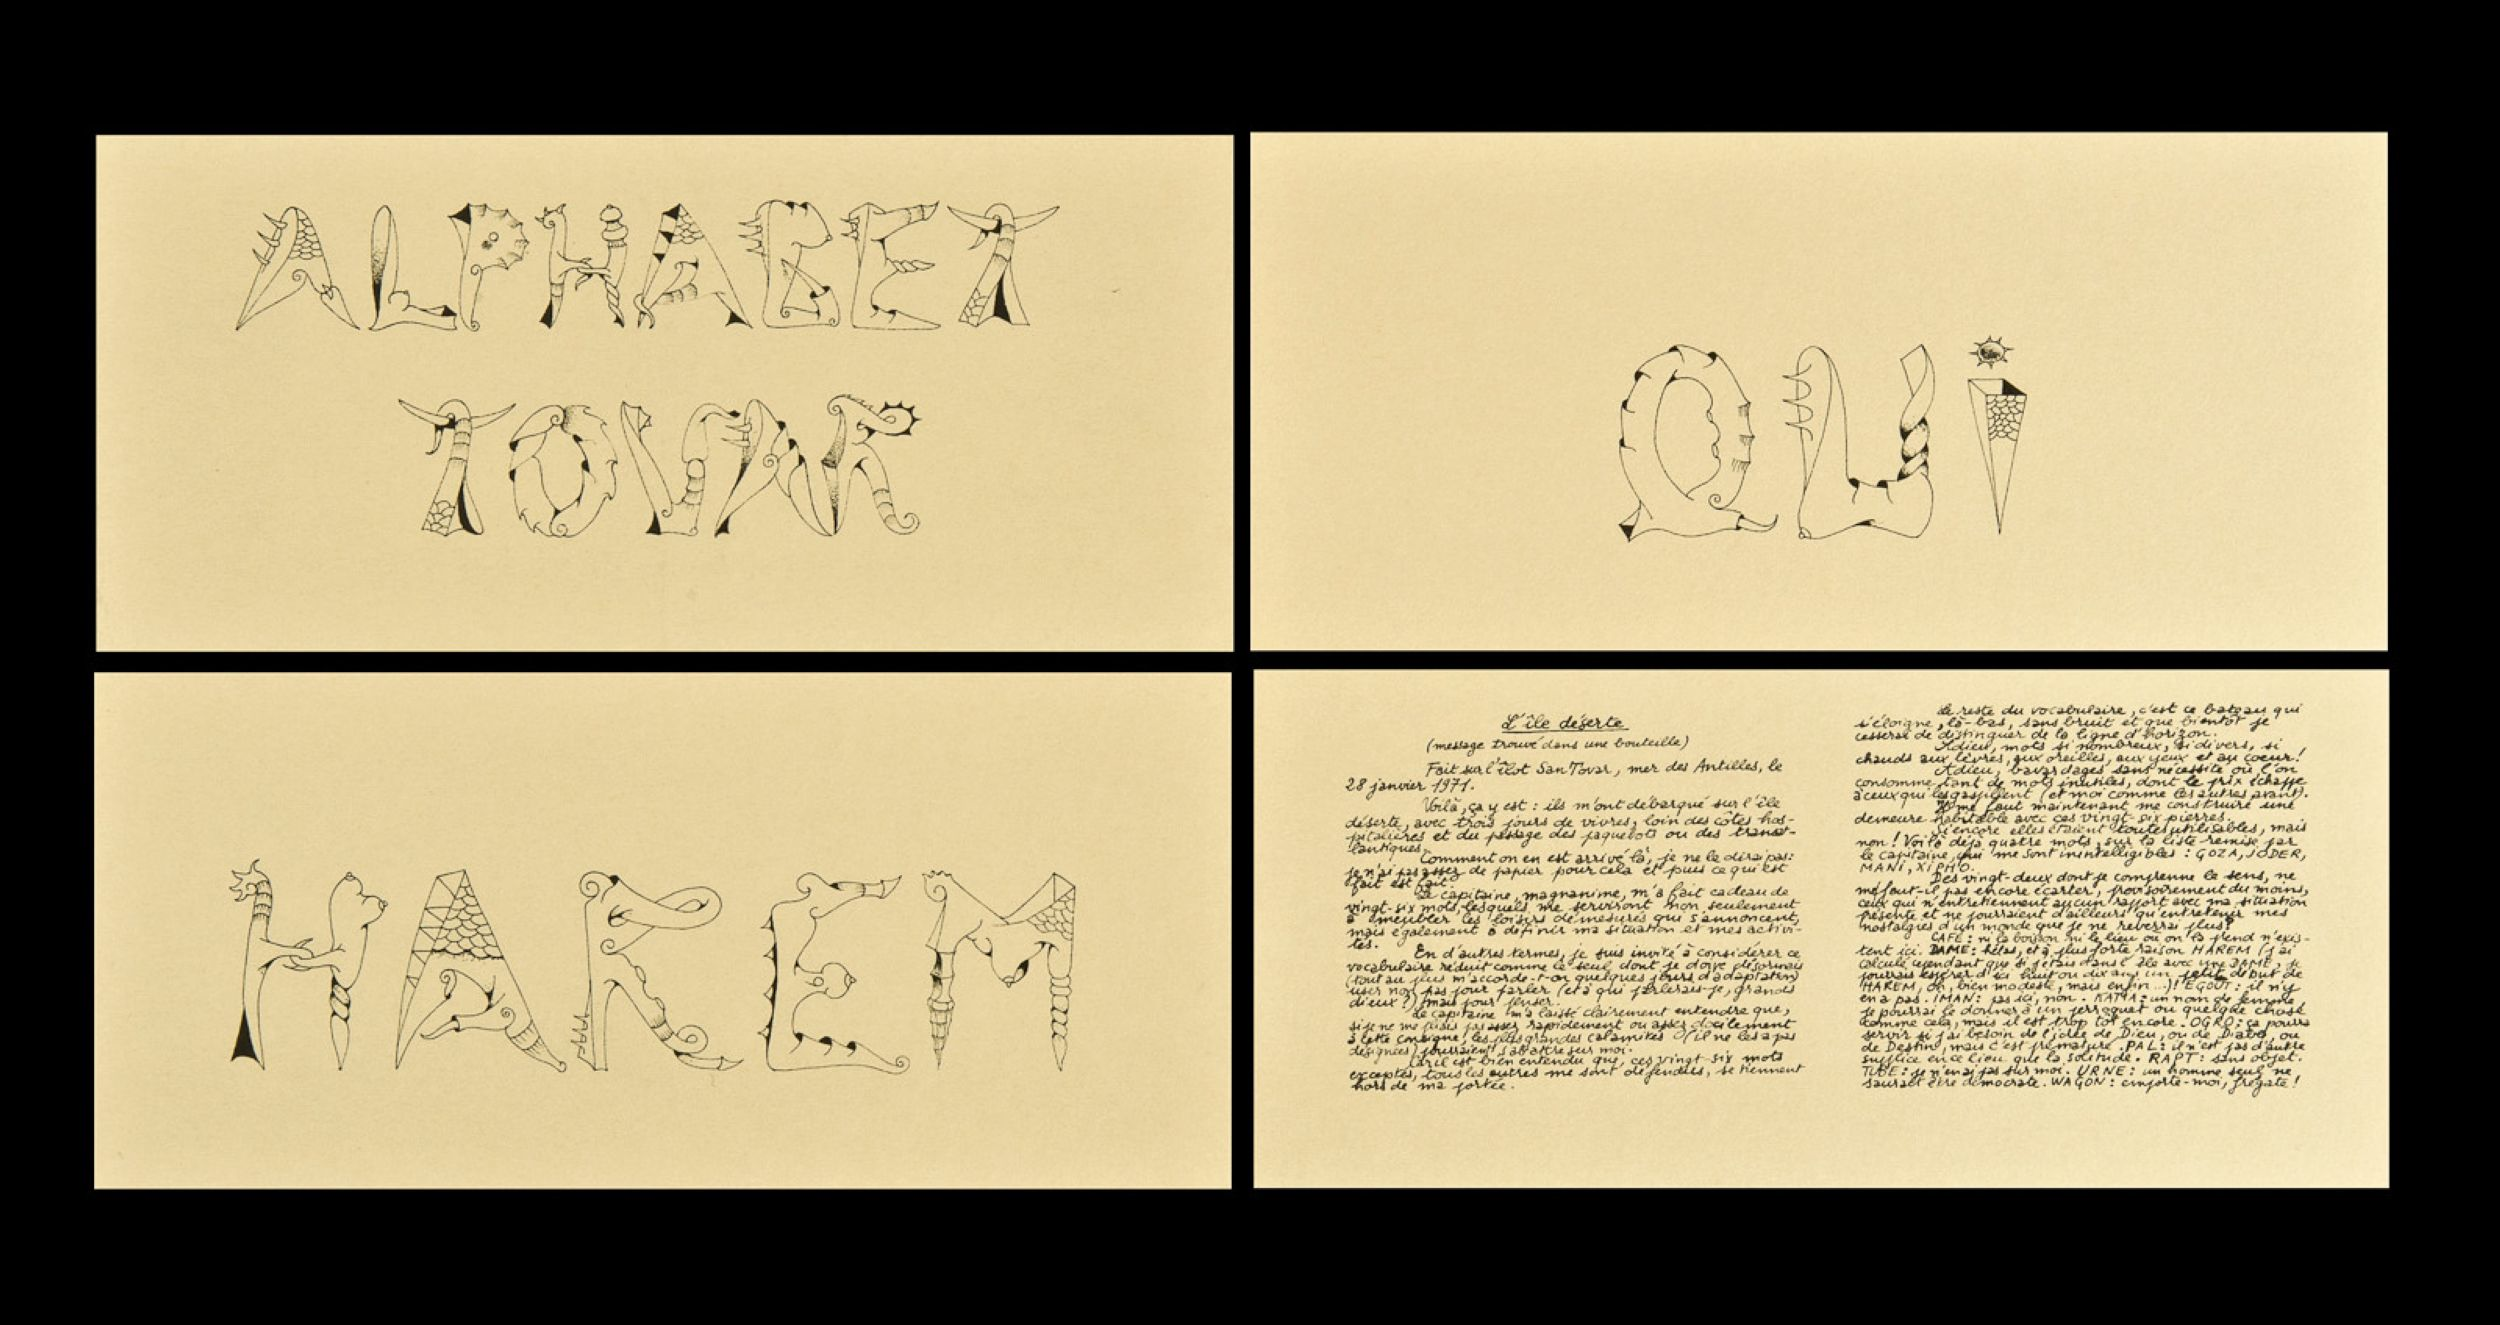 ALPHABET
TOVAR
QUi
HAREM
L'île déserte
(message trouvé dans une bouteille)
Fait sur l'îlot San Tovar, mer des Antilles, le
28 janvier 1971.
Voilà, ça y est : ils m'ont débarqué sur l'île
déserte, avec trois jours de vivres, loin des côtes hos-
pitalières et du passage des paquebots ou des transat-
lantiques.
Comment on en est arrivé là, je ne le dirai pas:
je n'ai pas assez de papier pour cela et puis ce qui est
fait est fait.
Le capitaine, magnanime, m'a fait cadeau de
vingt-six mots, lesquels me serviront non seulement
à meubler les loisirs démesurés qui s'annoncent,
mais également à définir ma situation et mes activi-
tés.
En d'autres termes, je suis invité à considérer ce
vocabulaire réduit comme le seul dont je doive désormais
(tout au plus m'accorde-t-on quelques jours d'adaptation)
user non pas pour parler (et à qui parlerais-je, grands
dieux ?) mais pour penser.
Le capitaine m'a laissé clairement entendre que,
si je ne me pliais pas assez rapidement ou assez docilement
à cette consigne, les plus grandes calamités (il ne les a pas
désignées) pourraient s'abattre sur moi.
Car il est bien entendu que, ces vingt-six mots
exceptés, tous les autres me sont défendus, se tiennent
hors de ma portée.
Le reste du vocabulaire, c'est ce bateau qui
s'éloigne, là-bas, sans bruit et que bientôt je
cesserai de distinguer de la ligne d'horizon.
Adieu, mots si nombreux, si divers, si
chauds aux lèvres, aux oreilles, aux yeux et au coeur!
Adieu, bavardages sans nécessité où l'on
consomme tant de mots inutiles, dont le prix échappe
à ceux qui les gaspillent (et moi comme les autres avant).
Il me faut maintenant me construire une
demeure habitable avec ces vingt-six pierres.
Si encore elles étaient toutes utilisables, mais
non ! Voilà déjà quatre mots, sur la liste remise par
le capitaine, qui me sont inintelligibles : GOZA, JODER,
MANI, XIPHO.
Des vingt-deux dont je comprenne le sens, ne
me faut-il pas encore écarter, provisoirement du moins,
ceux qui n'entretiennent aucun rapport avec ma situation
présente et ne pourraient d'ailleurs qu'entretenir mes
nostalgies d'un monde que je ne reverrai plus?
CAFÉ : ni la boisson ni le lieu où on la prend n'exis-
tent ici. DAME: hélas, et à plus forte raison HAREM (j'ai
calculé cependant que si j'étais dans l'île avec une DAME, je
pourrais espérer d'ici huit ou dix ans un petit début de
HAREM, oh, bien modeste, mais enfin...)! ÉGOUT : il n'y
en a pas. IMAN : pas ici, non. KATIA: un nom de femme,
je pourrai le donner à un perroquet ou quelque chose
comme cela, mais il est trop tôt encore. OGRO: ça pourra
servir si j'ai besoin de l'idée de Dieu, ou de Diable, ou
de Destin, mais c'est prématuré. PAL: il n'est pas d'autre
supplice en ce lieu que la solitude. RAPT : sans objet.
TUBE : je n'en ai pas sur moi. URNE : un homme seul ne
saurait être démocrate. WAGON : emporte-moi, frégate !